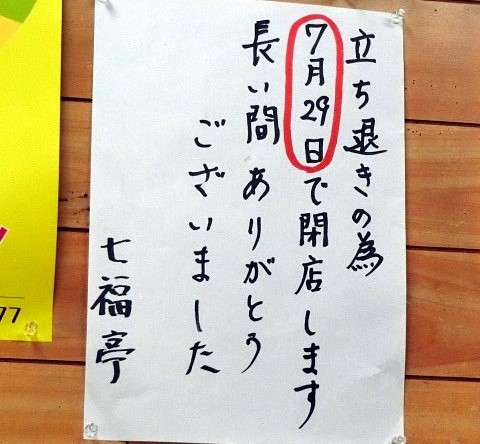 立ち退きの為
7月29日で閉店します
長い間ありがとう
ございました
七福亭
77